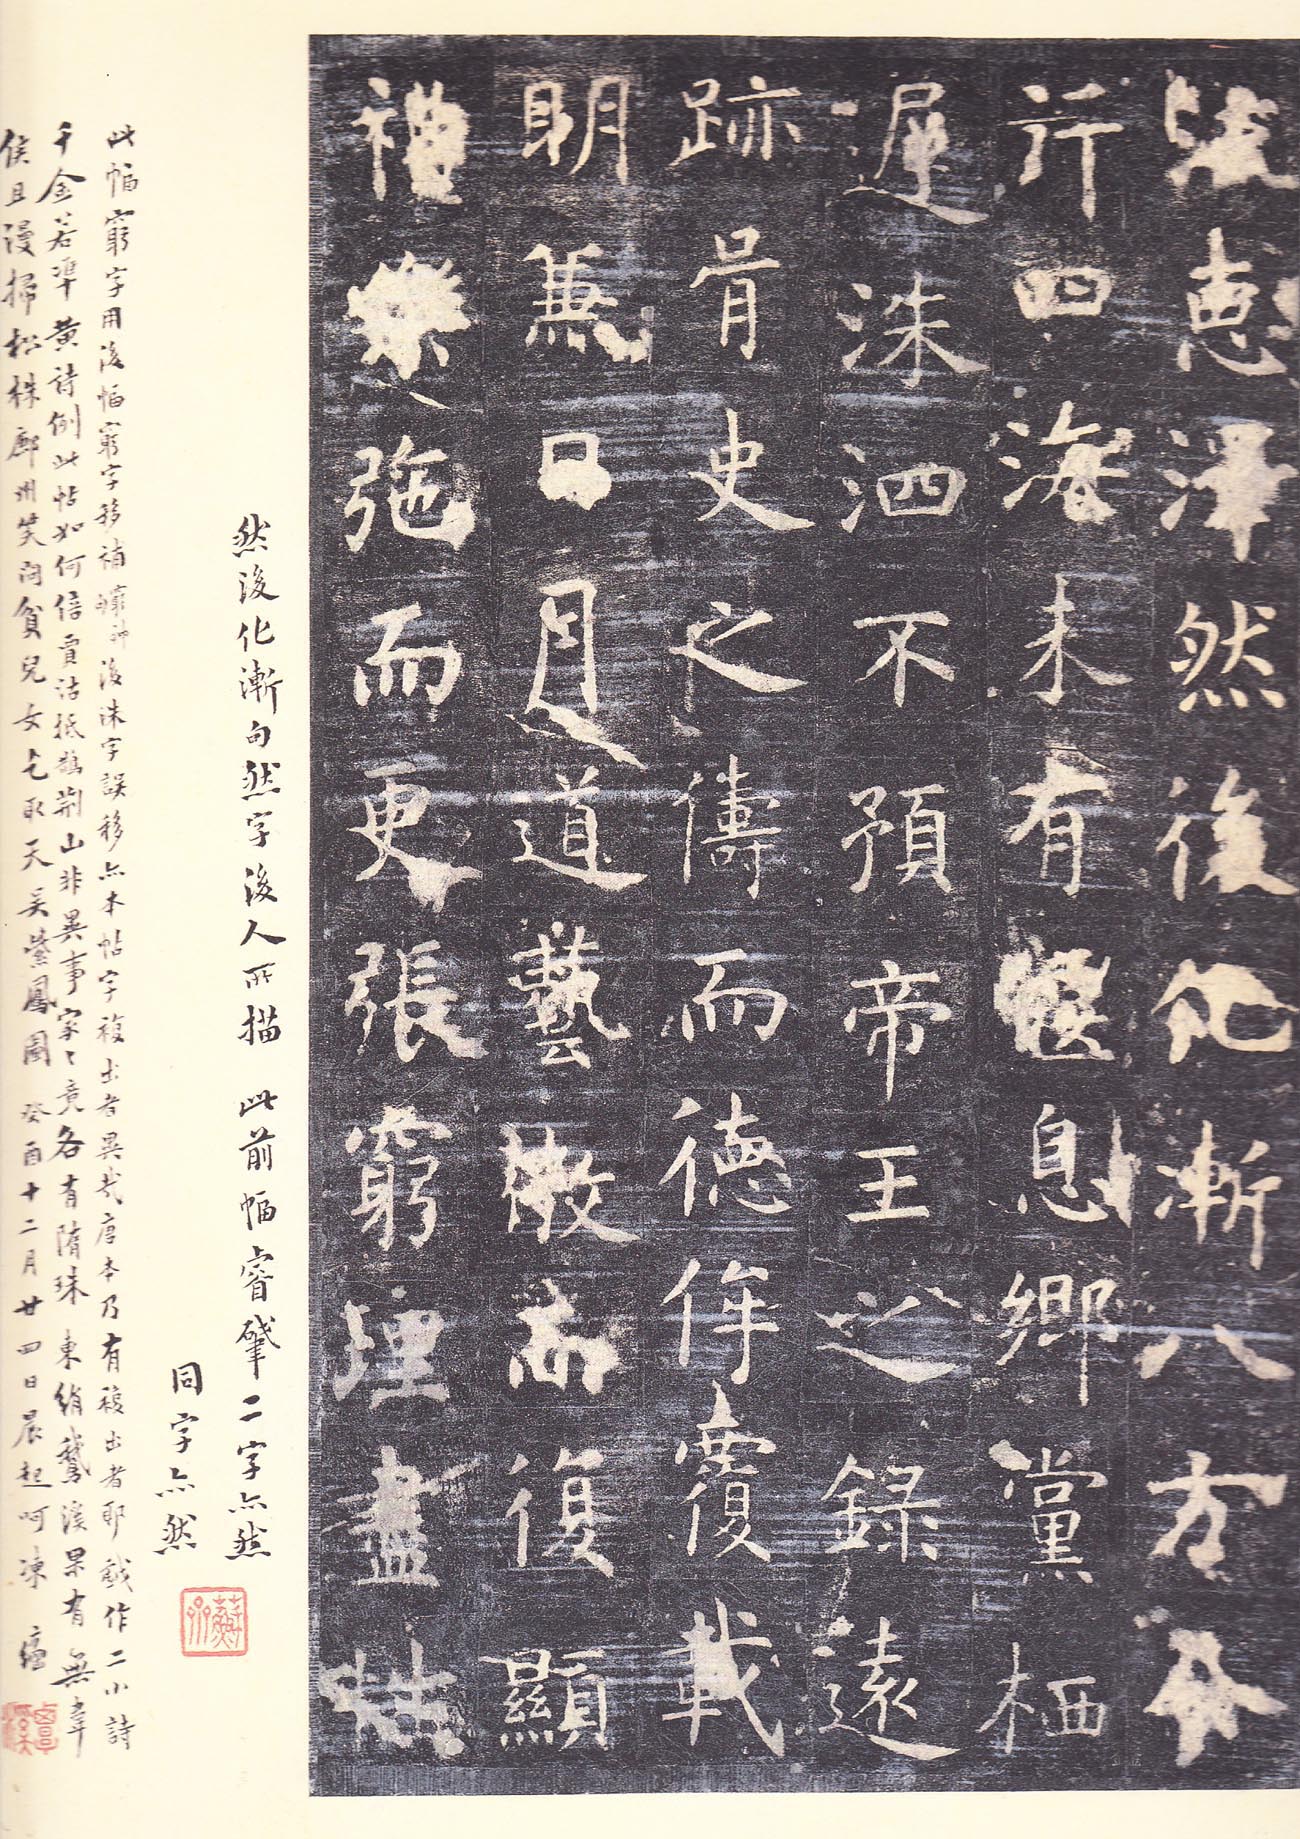 流恵澤然後化漸八方令
行四海未有偃息鄉黨栖
遅洙泗不預帝王之錄遠
跡胥史之儔而德侔覆載
明兼日月道藝微而復顯
禮樂弛而更張窮理盡性
然後化漸句然字後人所描 此前幅睿肇二字亦然
同字亦然
此幅窮字用後幅窮字移補 後洙字誤移亦本帖字複出者異哉唐本乃有複出者耶戲作二小詩
千金若準黃詩例此帖如何倍賈沽抵鵲荊山非異事家〻竟各有隋珠 東絹鵞溪果有無韋
侯且漫掃松株鄜州笑問貧兒女乞取天吳紫鳳圖 癸酉十二月廿四日晨起呵凍